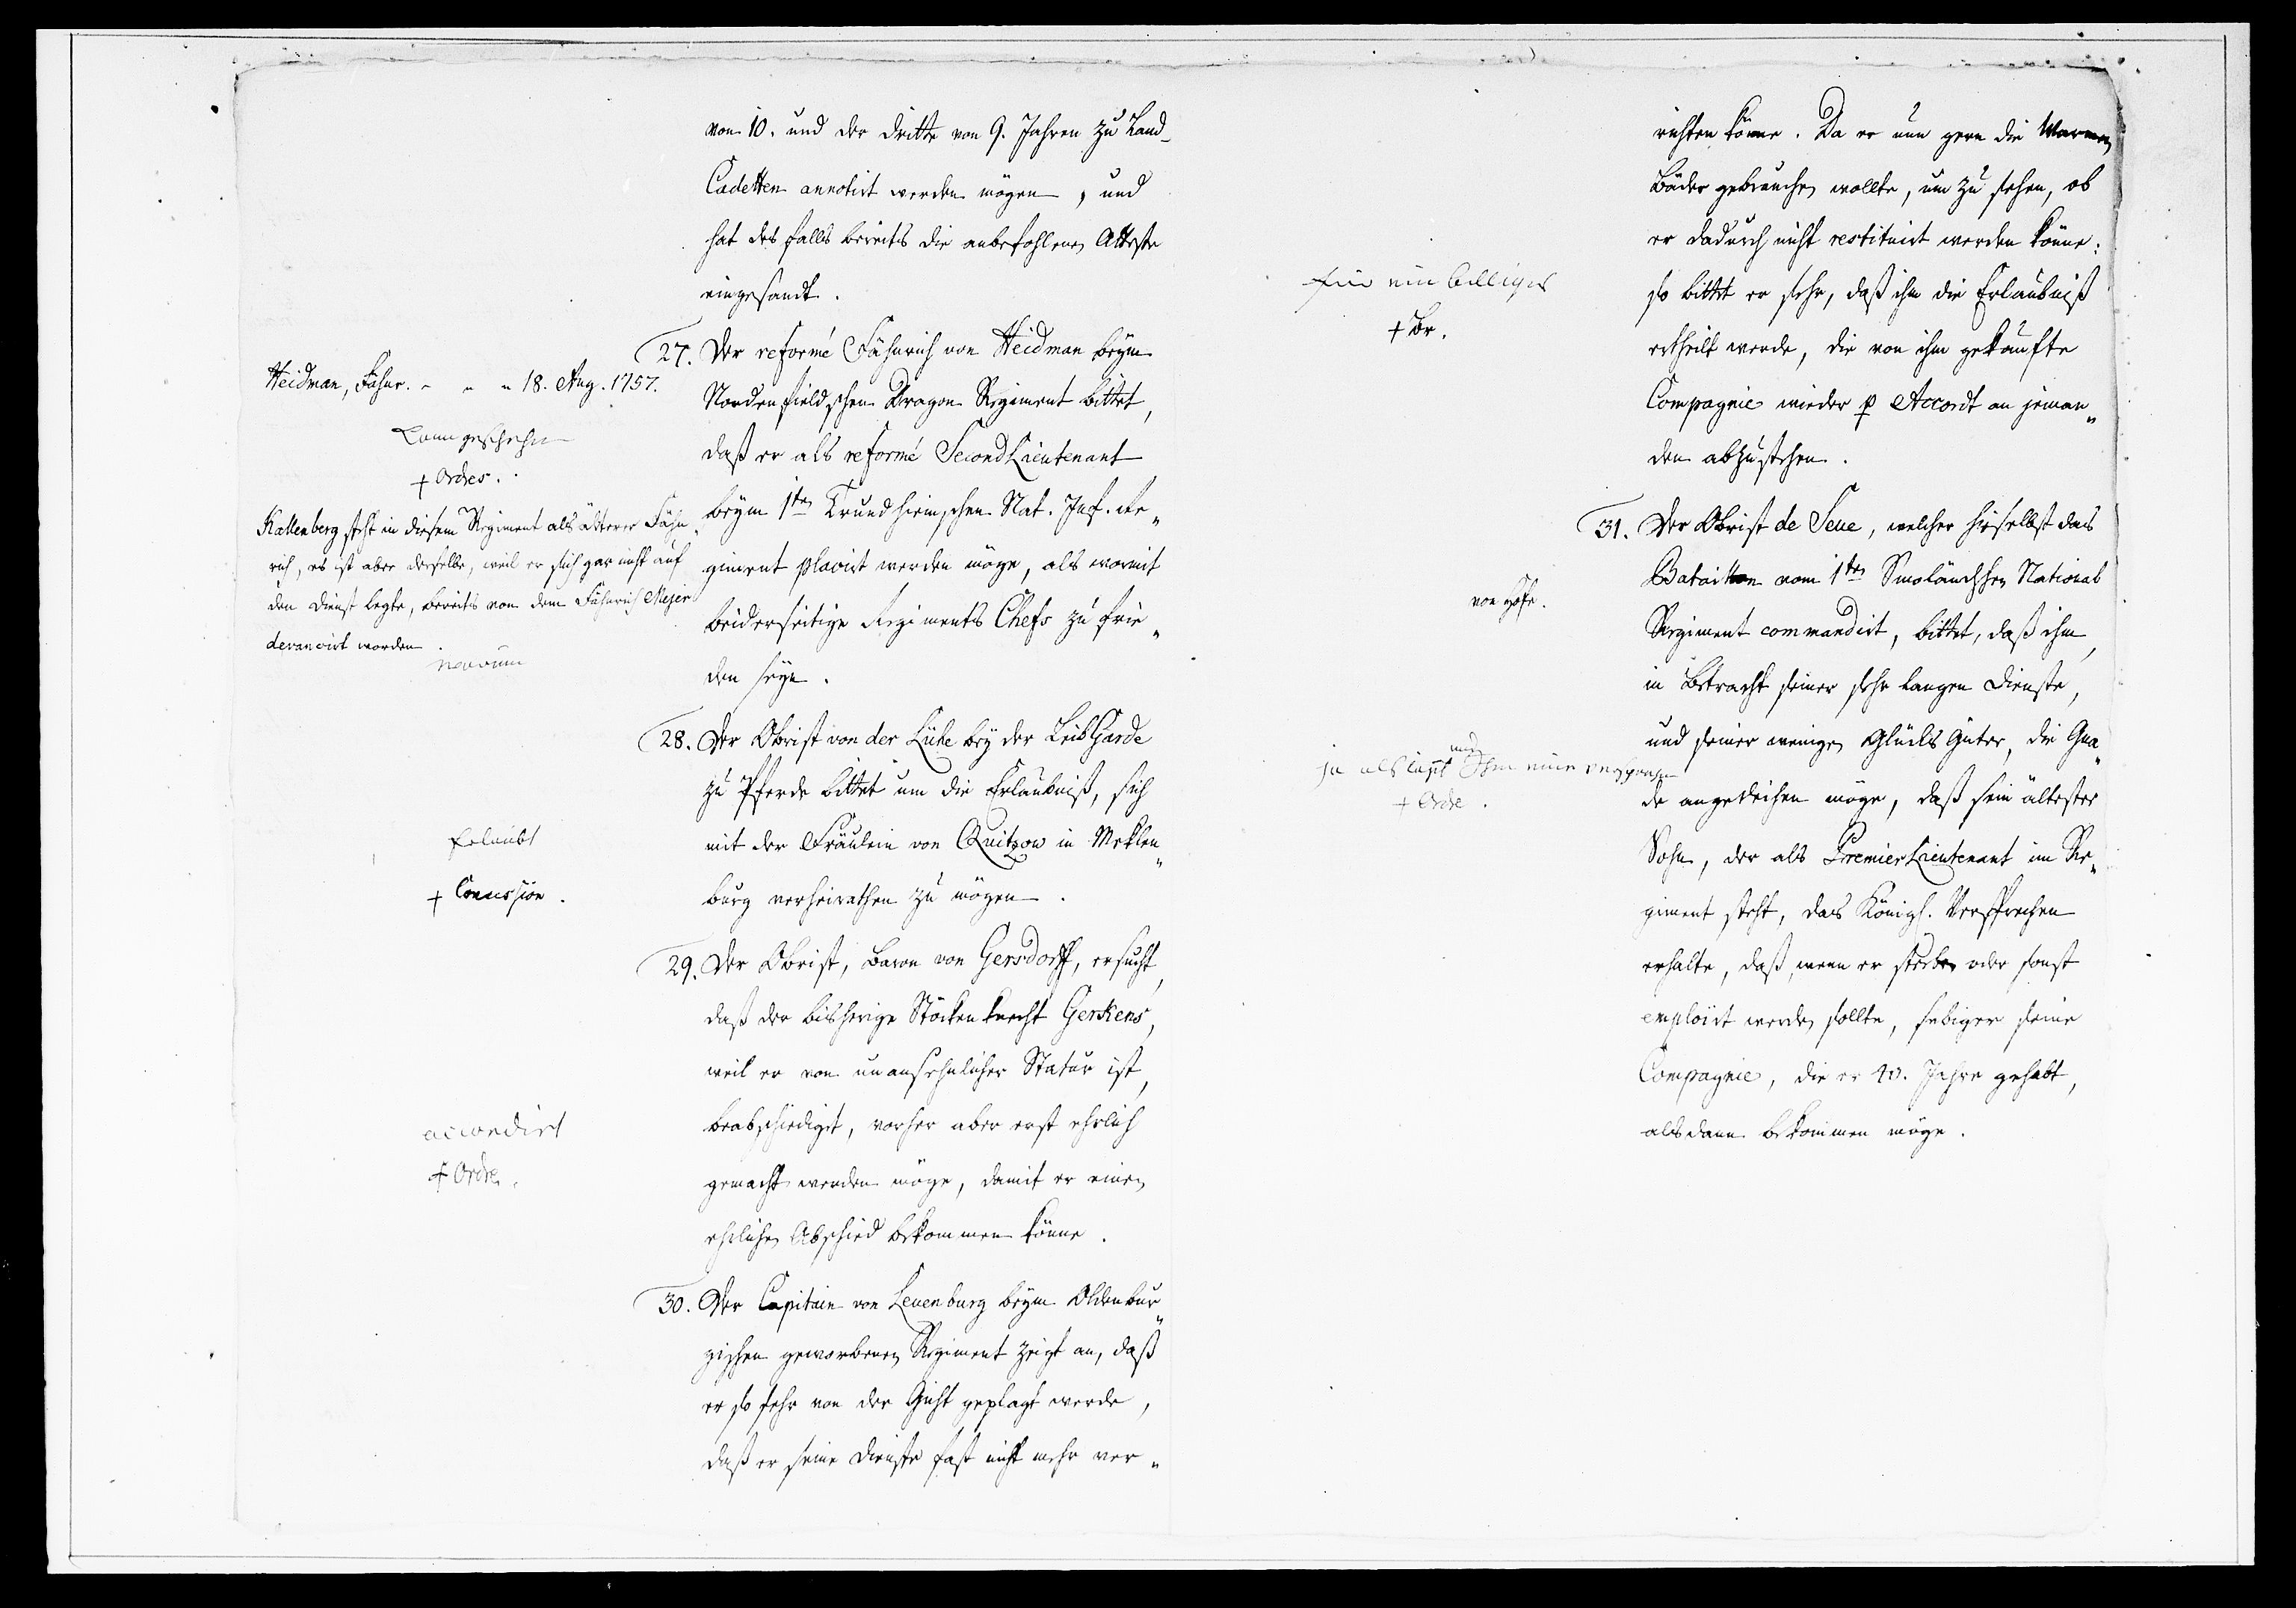 von 10. und der dritte von 9. Jahren zu Land-
Cadetten annotirt werden mögen, und
hat desfalls bereits die anbefohlenen Atteste
eingesandt.
27. Der reformé Fähnrich von Heidman beym
Nordenfieldschen Dragon Regiment bittet,
daß er als reformé SecondLieutenant
beym 1ten Trundheimschen Nat. Inf. Re„
giment placirt werden möge, als womit
beiderseitige Regiments Chefs zu frie„
den seyn.
Heidman, Fähnr. - - - 18. Aug. 1757.
Kann geschehen
+ Ordres.
Kallenberg steht in diesem Regiment als älterer Fähn„
rich, es ist aber derselbe, weil er sich gar nicht auf
den Dienst legte, bereits von dem Fähnrich Mejer
devancirt worden.
28. Der Obrist von der Lühe bey der LeibGarde
zu Pferde bittet um die Erlaubniß, sich
mit der Fräulein von Quitzow in Meklen„
burg verheirathen zu mögen.
Erlaubt
+ Concession.
29. Der Obrist, Baron von Gersdorff, ersucht,
daß der bisherige Stöcken Knecht Gerkens,
weil er von unansehnlicher Statur ist,
beabschiediget, vorher aber erst ehrlich
gemacht werden möge, damit er einen
ehrlichen Abschied bekommen könne.
accordirt
+ Ordre.
30. Der Capitain von Levenburg beym Oldenbur„
gischen geworbenen Regiment zeigt an, daß
er so sehr von der Gicht geplagt werde,
daß er seine Dienste fast nicht mehr ver„
richten könne. Da er nun gern die Warmen
Bäder gebrauchen wollte, um zu sehen, ob
er dadurch nicht restituirt werden könne:
so bittet er sehr, daß ihm die Erlaubniß
ertheilt werde, die von ihm gekaufte
Compagnie wieder p Accordt an jeman„
den abzustehen.
für ein billiges
+ Br.
31. Der Obrist de Seue, welcher hieselbst das
Bataillon vom 1ten Smoländschen National
Regiment commandirt, bittet, daß ihm,
in Betracht seiner sehr langen Dienste,
und seiner wenigen Glücks Güter, die Gna„
de angedeihen möge, daß sein ältester
Sohn, der als PremierLieutenant im Re„
giment steht, das Königl. Versprechen
erhalte, daß, wenn er sterben oder sonst
emploirt werden sollte, selbiger seine
Compagnie, die er 40. Jahre gehabt,
alsdann bekommen möge.
von Hofe.
+ Ordre.